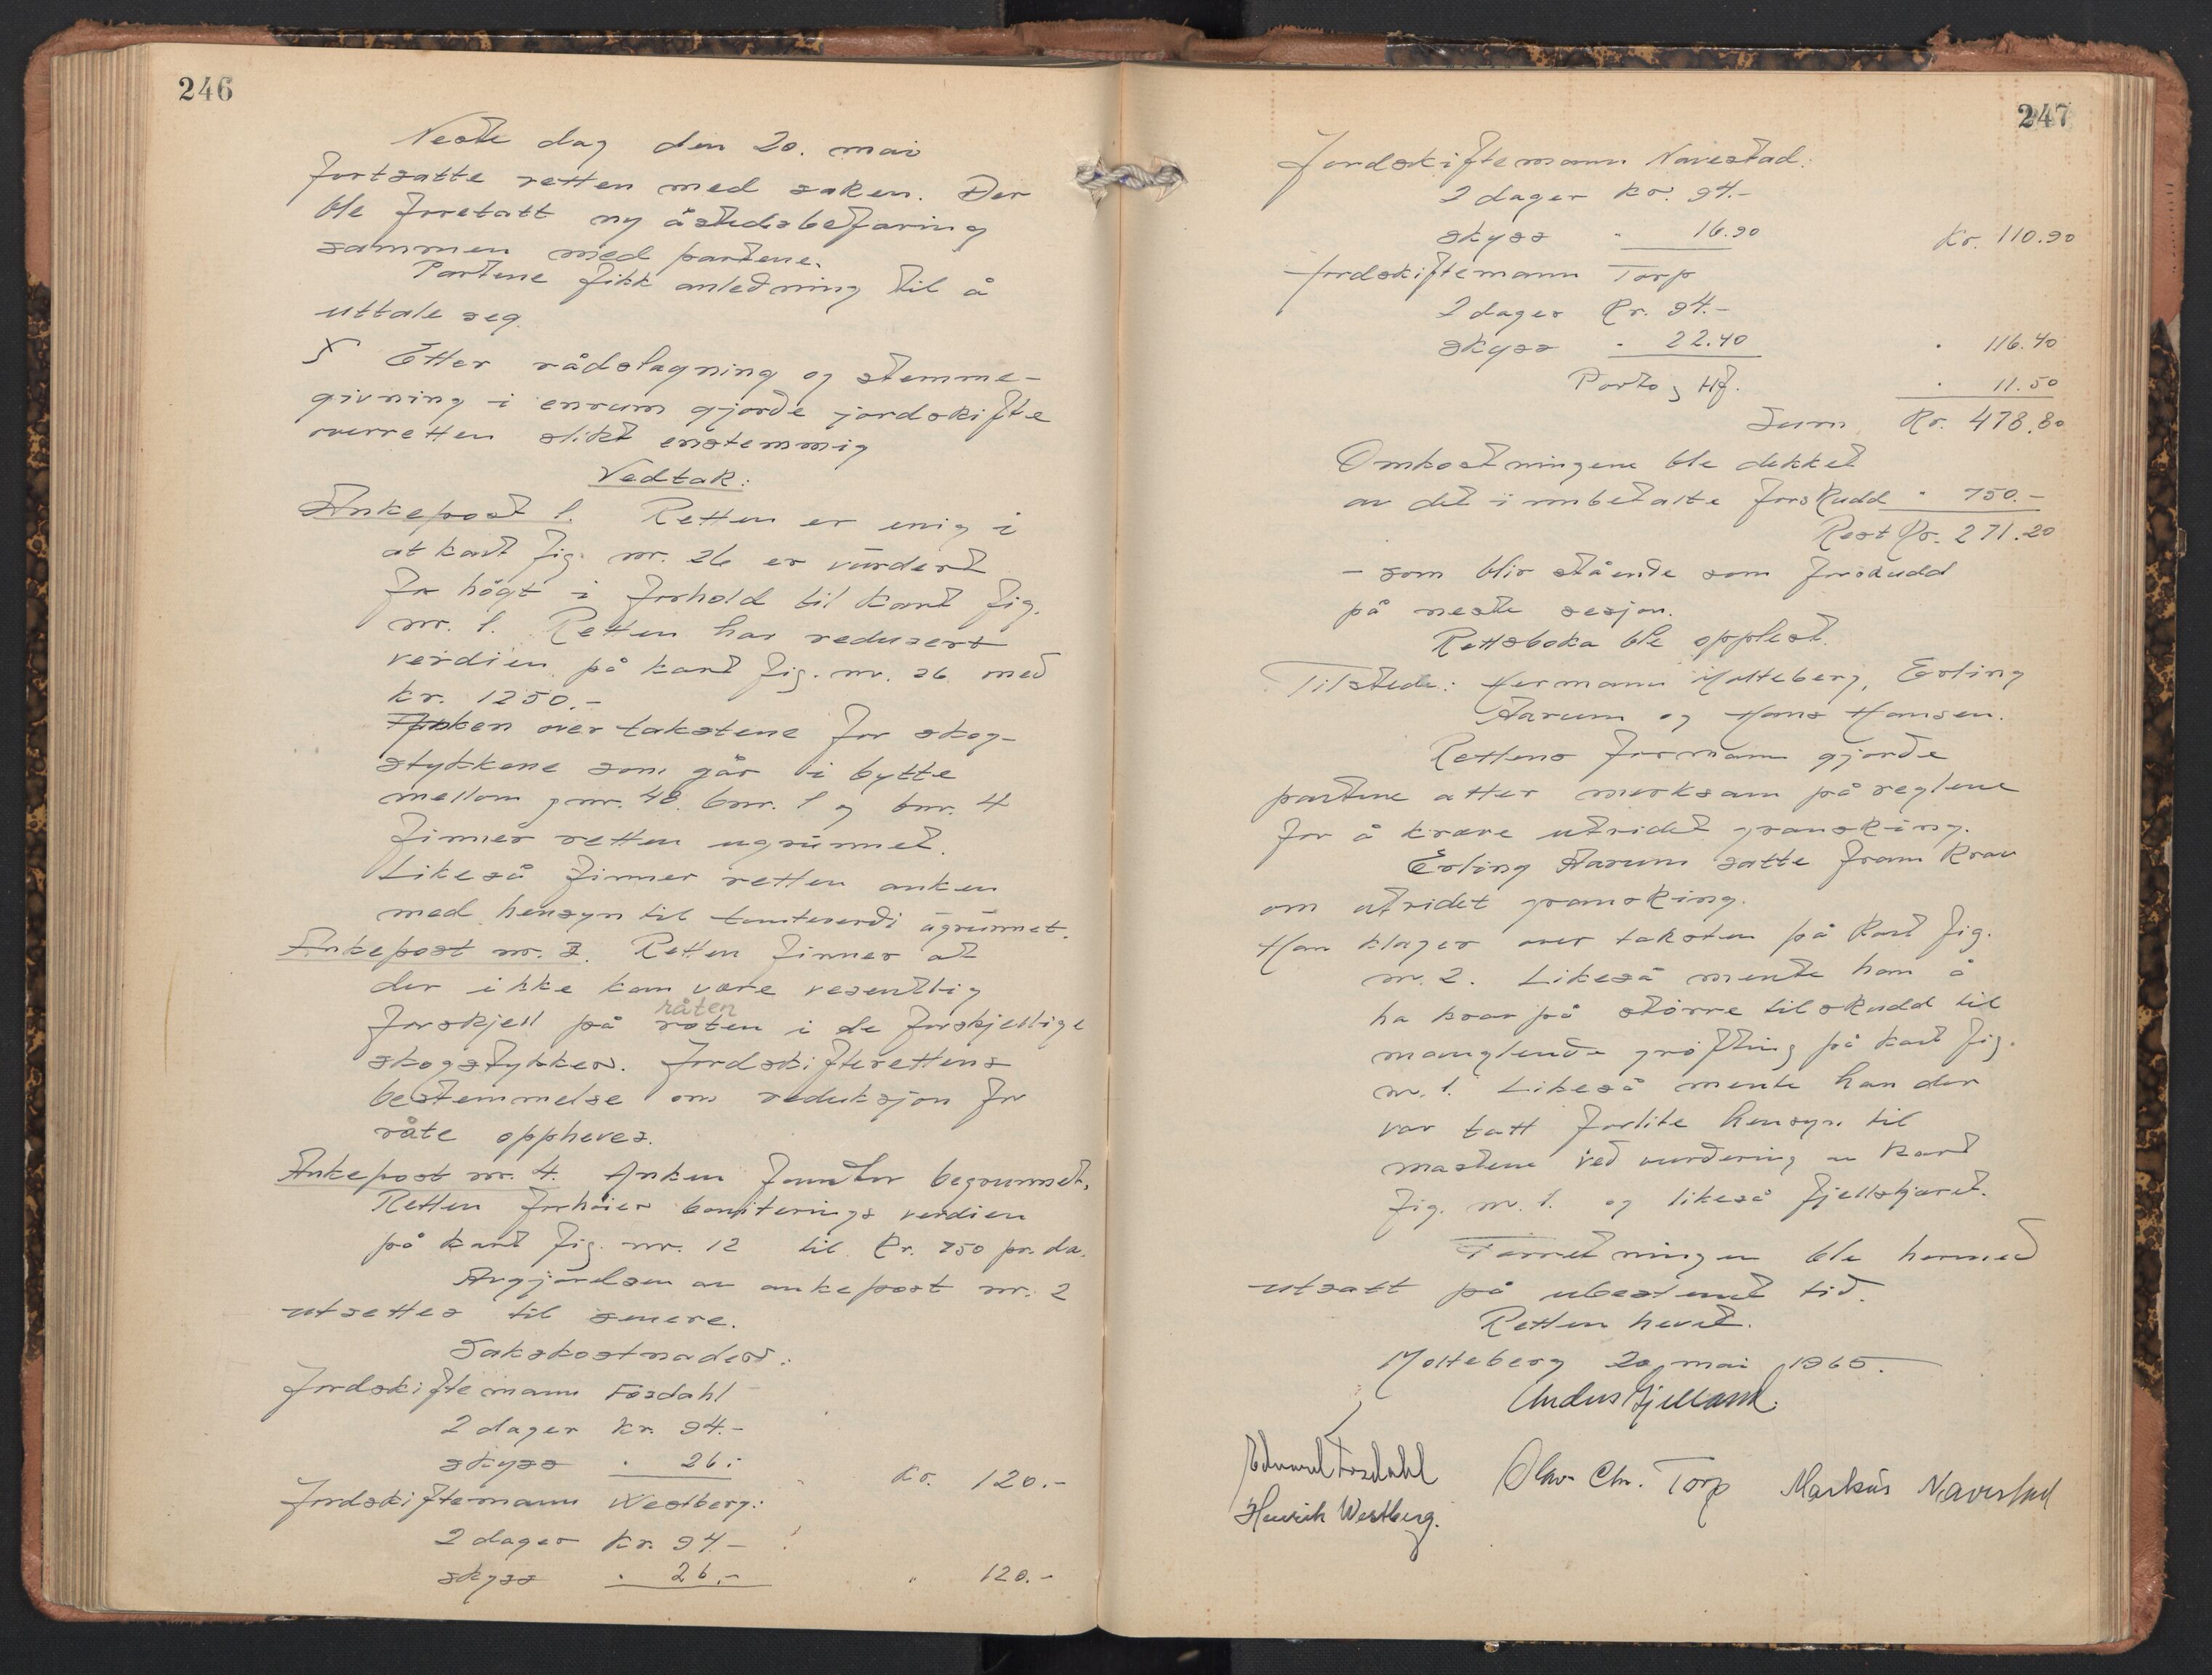 246
Neste dag den 20. mai
fortsatte retten med saken. Der
ble foretatt ny åstedsbefaring
sammen med partene.
Partene fikk anledning til å
uttale seg.
Etter rådslagning og stemme-
givning i enrum gjorde jordskifte
overretten slikt enstemmig
Vedtak:
Ankepost 1. Retten er enig i
at kart fig. nr. 26 er vurdert
for högt i forhold til kart fig.
nr. 1. Retten har redusert
verdien på kart fig. nr. 26 med
kr. 1250.-
Anken over takstene for skog-
stykkene som går i bytte
mellom gnr. 48 bnr. 1 og bnr. 4
finner retten ugrunnet.
Likeså finner retten anken
med hensyn til tomteverdi ugrunnet.
Ankepost nr. 3. Retten finner at
der ikke kan være vesentlig
råten
forskjell på roten i de forskjellige
skogstykker. Jordskifterettens
bestemmelse om reduksjon for
råte oppheves.
Ankepost nr. 4. Anken begrunnet.
Retten forhöier boniterings verdien
på kart fig. nr. 12 til kr. 750 pr. da.
Avgjörelsen av ankepost nr. 2
utsettes til senere.
Sakskostnader:
Jordskiftemann Fosdahl
2 dager kr. 94.-
skyss " 26.- Kr. 120.-
Jordskiftemann Westberg:
2 dager kr. 94.-
skyss " 26.- " 120.-
247
Jordskiftemann Navestad:
2 dager kr. 94.-
skyss " 16.90 Kr. 110.90
Jordskiftemann Torp
2 dager Kr. 94.-
skyss " 22.40 " 116.40
Porto, tlf. " 11.50
Sum Kr. 478.80
Omkostningene ble dekket
av det innbetalte forskudd " 750.-
Rest Kr. 271.20
- som blir stående som forskudd
på neste sesjon.
Rettsboka ble opplest.
Tilstede: Hermann Molteberg, Erling
Aarum og Hans Hansen.
Rettens formann gjorde
partene atter merksam på reglene
for å kreve utvidet gransking.
Erling Aarum satte fram krav
om utvidet gransking.
Han klager over taksten på kart fig.
nr. 2. Likeså mente han å
ha krav på större tilskudd til
manglende gröfting på kart fig.
nr. 1. Likeså mente han der
var tatt forlite hensyn til
mastene ved vurdering av kart
fig. nr. 1. og likeså fjellskjæret.
Forretningen ble hermed
utsatt på ubestemt tid.
Retten hevet.
Molteberg 20. mai 1965.
Anders Gjelland.
Edvard Fosdahl Olav Chr. Torp Markus Navestad
Henrik Westberg.